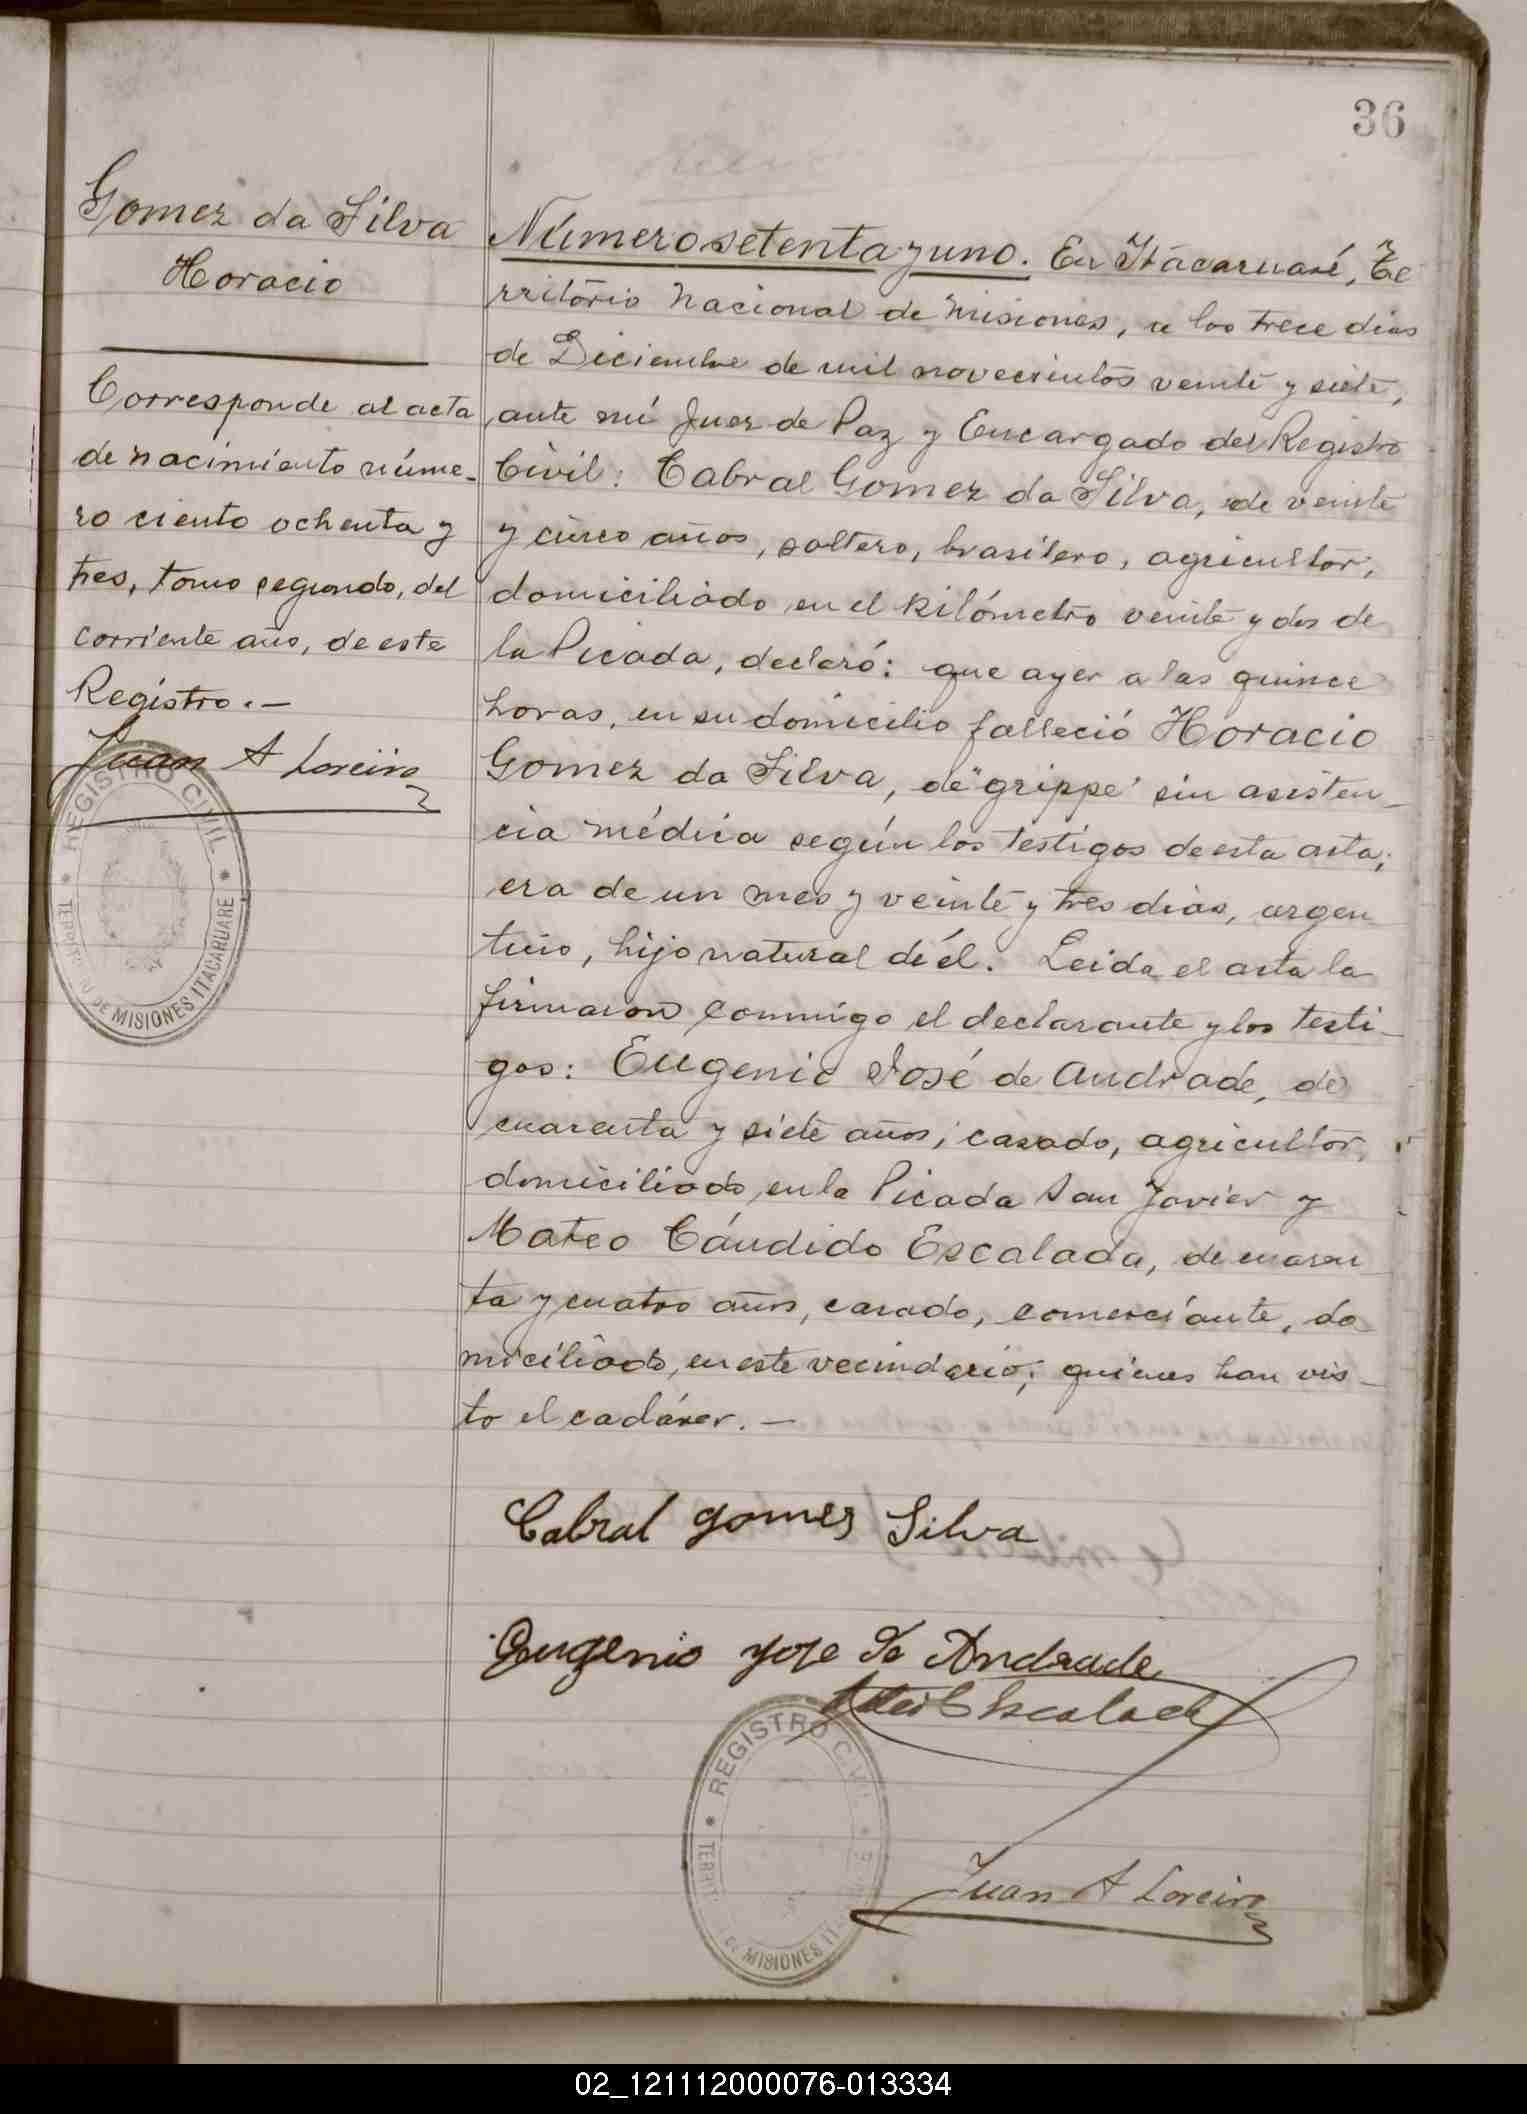 36
Gomez da Silva
Horacio
Corresponde al acta
de nacimiento núme-
ro ciento ochenta y
tres, tomo segundo, del
corriente año, de este
Registro.—
Juan A Loreiro
REGISTRO CIVIL
TERRITORIO DE MISIONES ITACARUARE
Número setenta y uno. En Itacaruaré, Te
rritório Nacional de Misiones, a los trece dias
de Diciembre de mil novecientos veinte y siete,
ante mí Juez de Paz y Encargado del Registro
Civil: Cabral Gomez da Silva, de veinte
y cinco años, soltero, brasilero, agricultor,
domiciliado en el kilómetro veinte y dos de
la Picada, declaró: que ayer a las quince
horas, en su domicilio falleció Horacio
Gomez da Silva, de "grippe" sin asisten-
cia médica según los testigos de esta acta;
era de un mes y veinte y tres dias, argen
tino, hijo natural de él. Leida el acta la
firmaron conmigo el declarante y los testi-
gos: Eugenio José de Andrade, de
cuarenta y siete años, casado, agricultor,
domiciliado en la Picada San Javier y
Mateo Cándido Escalada, de cuaren
ta y cuatro años, casado, comerciante, do
miciliado, en este vecindario; quienes han vis-
to el cadáver.—
Cabral gomes Silva
Eugenio Joze de Andrade
Mateo C Escalada
REGISTRO CIVIL
TERRIT DE MISIONES IT
Juan A Loreiro
02_121112000076-013334